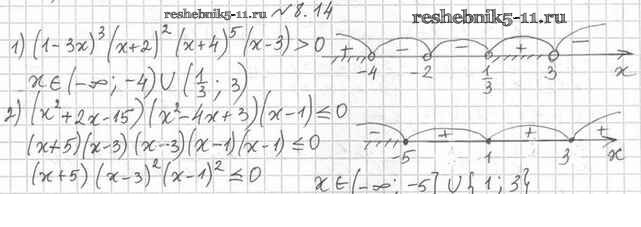 reshebnik5-11.ru № 8.14 reshebnik5-11.ru
1) (1-3x)³(x+2)²(x+4)⁵(x-3)>0
+ - - + -
-4 -2 1/3 3 x
x∈(-∞; -4)∪(1/3; 3)
2) (x²+2x-15)(x²-4x+3)(x-1)≤0
(x+5)(x-3)(x-3)(x-1)(x-1)≤0
- + + +
-5 1 3 x
(x+5)(x-3)²(x-1)²≤0
x∈(-∞; -5]∪{1; 3}